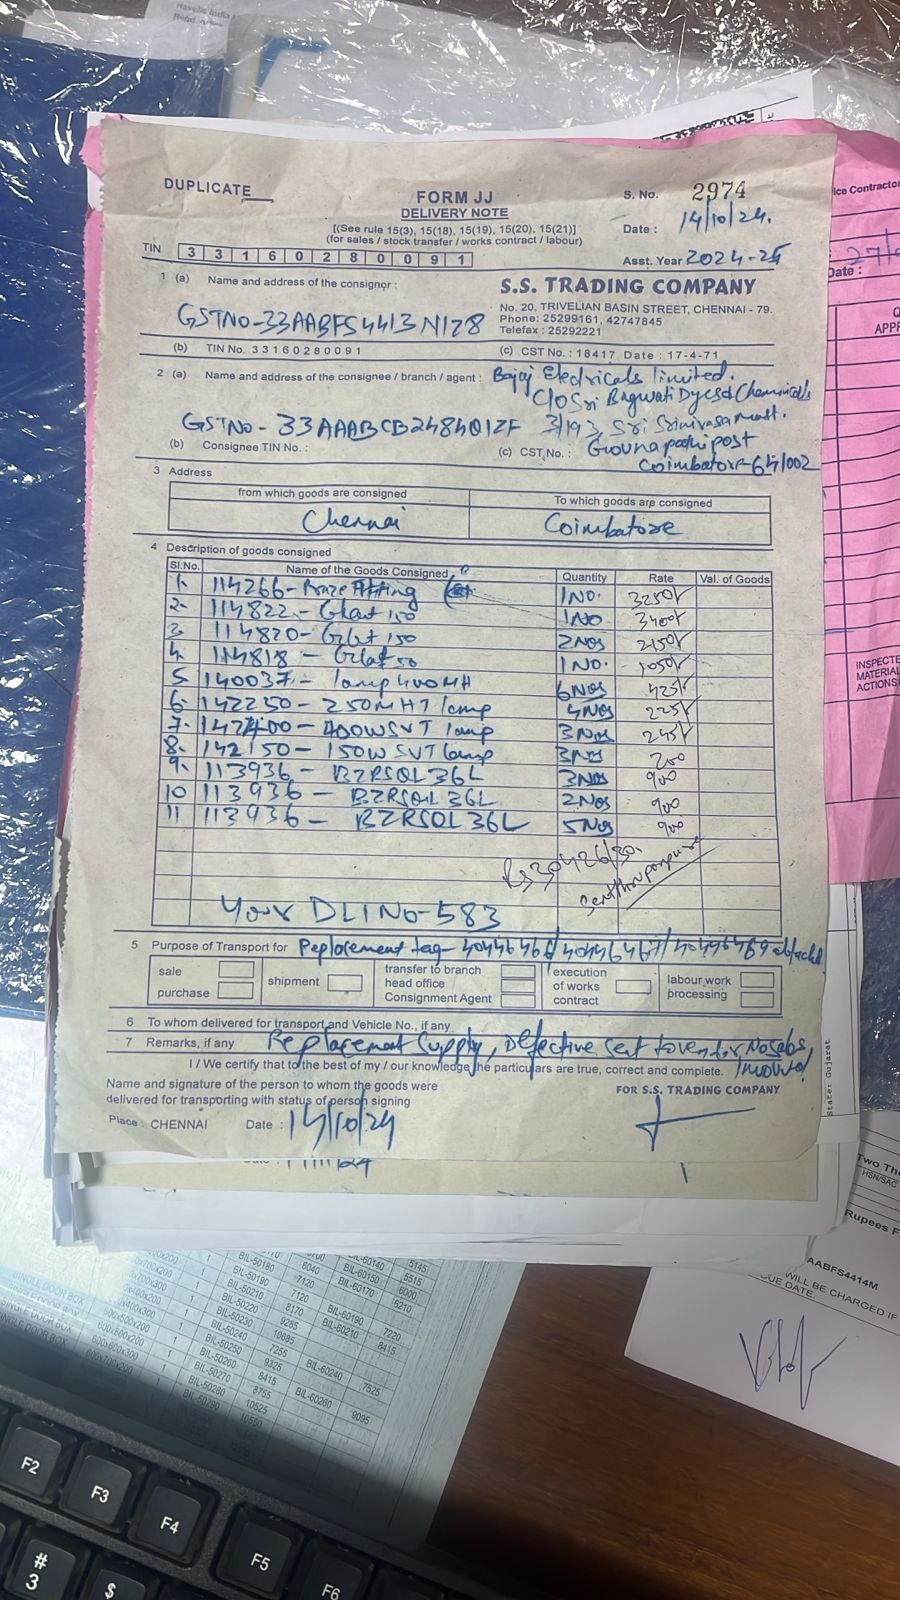 Havells India
DUPLICATE
FORM JJ
DELIVERY NOTE
[(See rule 15(3), 15(18), 15(19), 15(20), 15(21)]
(for sales / stock transfer / works contract / labour)
S. No. 2974
Date : 14/10/24.
Asst. Year 2024-25
TIN 3 3 1 6 0 2 8 0 0 9 1
1 (a) Name and address of the consignor :
S.S. TRADING COMPANY
No. 20, TRIVELIAN BASIN STREET, CHENNAI - 79.
Phone: 25299161, 42747845
Telefax : 25292221
GSTNO-33AABFS4413N1Z8
(b) TIN No. 3 3 1 6 0 2 8 0 0 9 1
(c) CST No. : 18417 Date : 17-4-71
2 (a) Name and address of the consignee / branch / agent : Bajaj Eledricals limited.
C/O Sri Bagwati Dyes & Chemicals
GSTNO - 33AAABCB2484Q1ZF 3/193, Sri Srinivasa
(b) Consignee TIN No. :
(c) CST No. : post
Coimbatore-641002
3 Address
from which goods are consigned
To which goods are consigned
Chennai
Coimbatore
4 Description of goods consigned
Sl.No. Name of the Goods Consigned Quantity Rate Val. of Goods
1. 114266- 1NO. 3250/
2- 114822- 150 1NO 3400/
3 114820- 150 2Nos 2150/
4 114818 - 1NO. 1050/
5 140037- lamp 400MH 6Nos 425/
6- 142250- 250MHT lamp 4Nos 225/
7- 400WSVT lamp 3Nos 245/
8- 142150- 150W SVT lamp 3Nos 200
9- 113936- BZRSQL36L 3Nos 900
10 113936- BZRSQL36L 2Nos 900
11 113936- BZRSQL36L 5Nos 900
Rs 30426/30.
your DLINO-583
5 Purpose of Transport for Replacement tag- 40446467/
sale
purchase
shipment
transfer to branch
head office
Consignment Agent
execution
of works
contract
labour work
processing
6 To whom delivered for transport and Vehicle No., if any.
7 Remarks, if any Replacement Supply, Defective sent to vendor
I / We certify that to the best of my / our knowledge the particulars are true, correct and complete.
Name and signature of the person to whom the goods were
delivered for transporting with status of person signing
FOR S.S. TRADING COMPANY
Place : CHENNAI Date : 14/10/24
ice Contractor
Date : 27/
APPR
INSPECTE
MATERIAL
ACTIONS/
State: Gujarat
Two Th
HSN/SAC
Rupees F
AABFS4414M
WILL BE CHARGED IF
DUE DATE.
BIL-50180
BIL-50190
BIL-50210
BIL-50220
BIL-50230
BIL-50240
BIL-50250
BIL-50260
BIL-50270
BIL-50280
6040
7120
7120
8170
9285
10885
7255
9325
8415
8755
10525
10550
BIL-60140
BIL-60150
BIL-60170
BIL-60190
BIL-60210
BIL-60240
BIL-60260
5145
5515
6000
6210
7220
8415
7525
9095
F2
F3
F4
F5
F6
#
3
$